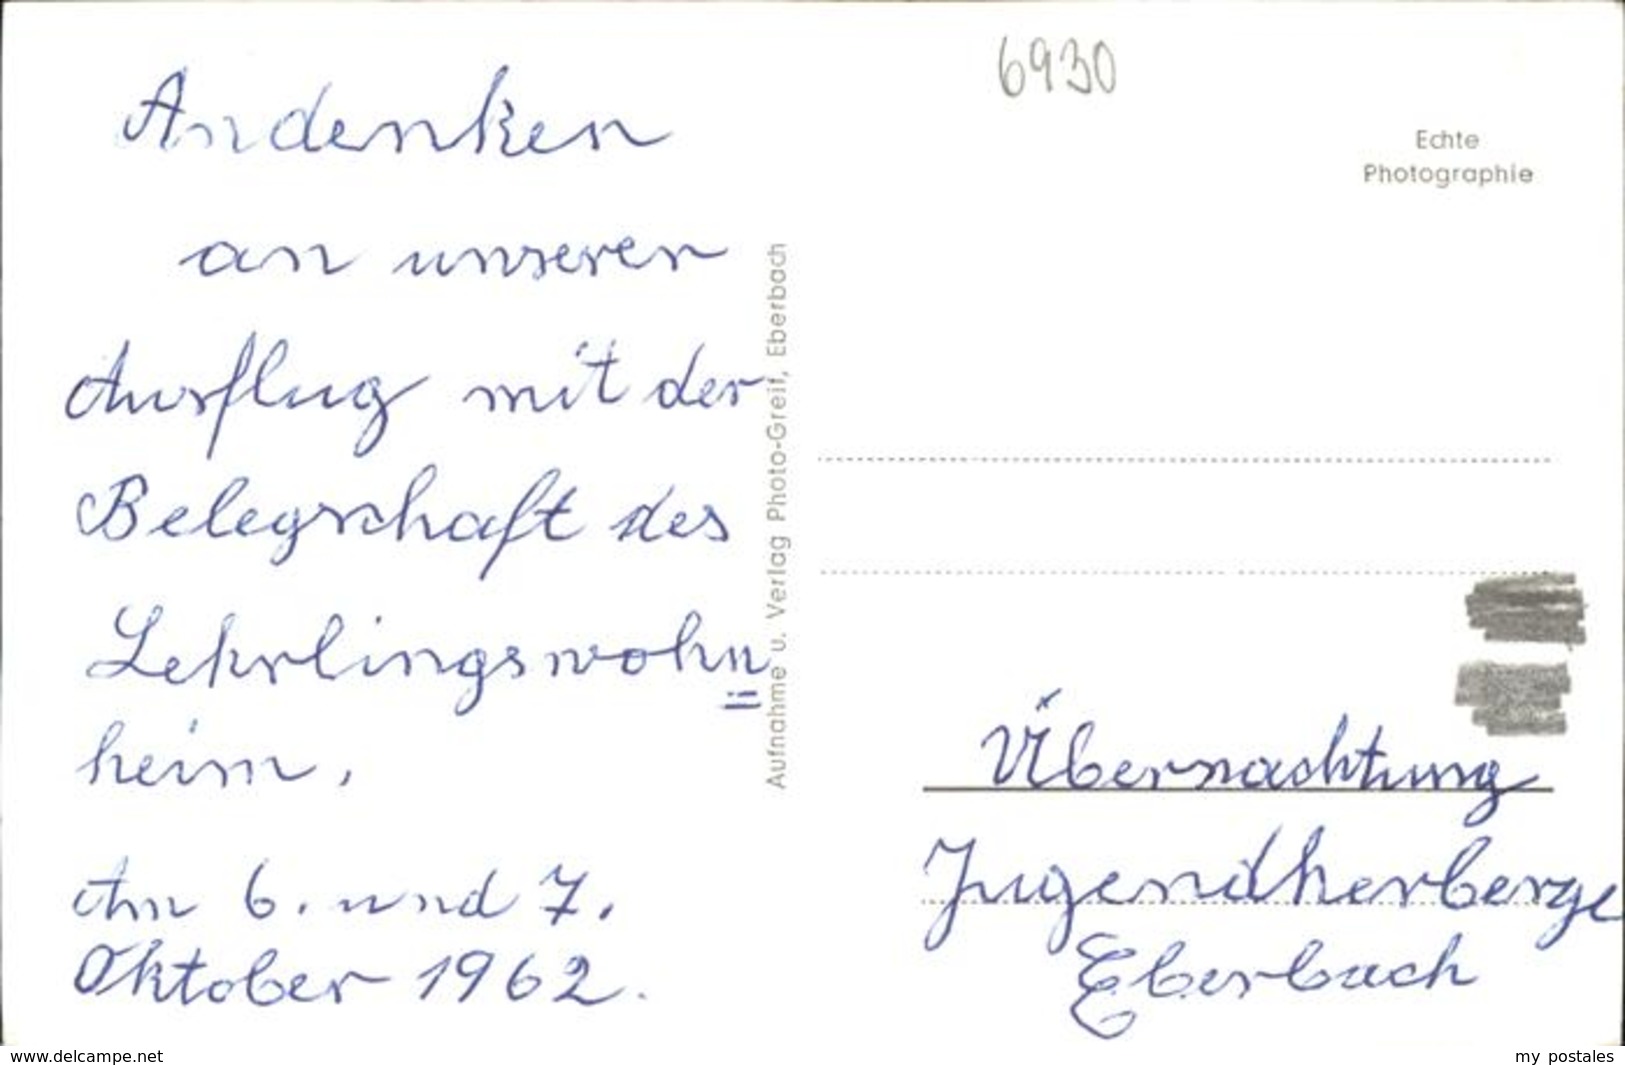 Andenken
an unseren
Ausflug mit der
Belegschaft des
Lehrlingswohn=
heim.
Am 6. und 7.
Oktober 1962.
Aufnahme u. Verlag Photo-Greif, Eberbach
6930
Echte
Photographie
Übernachtung
Jugendherberge
Eberbach
www.delcampe.net
my postales